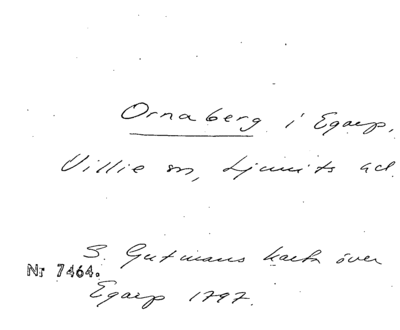 Ornaberg i Egarp,
Villie sn, Ljunits hd.
S. Gutmans karta över
Nr 7464.
Egarp 1797.